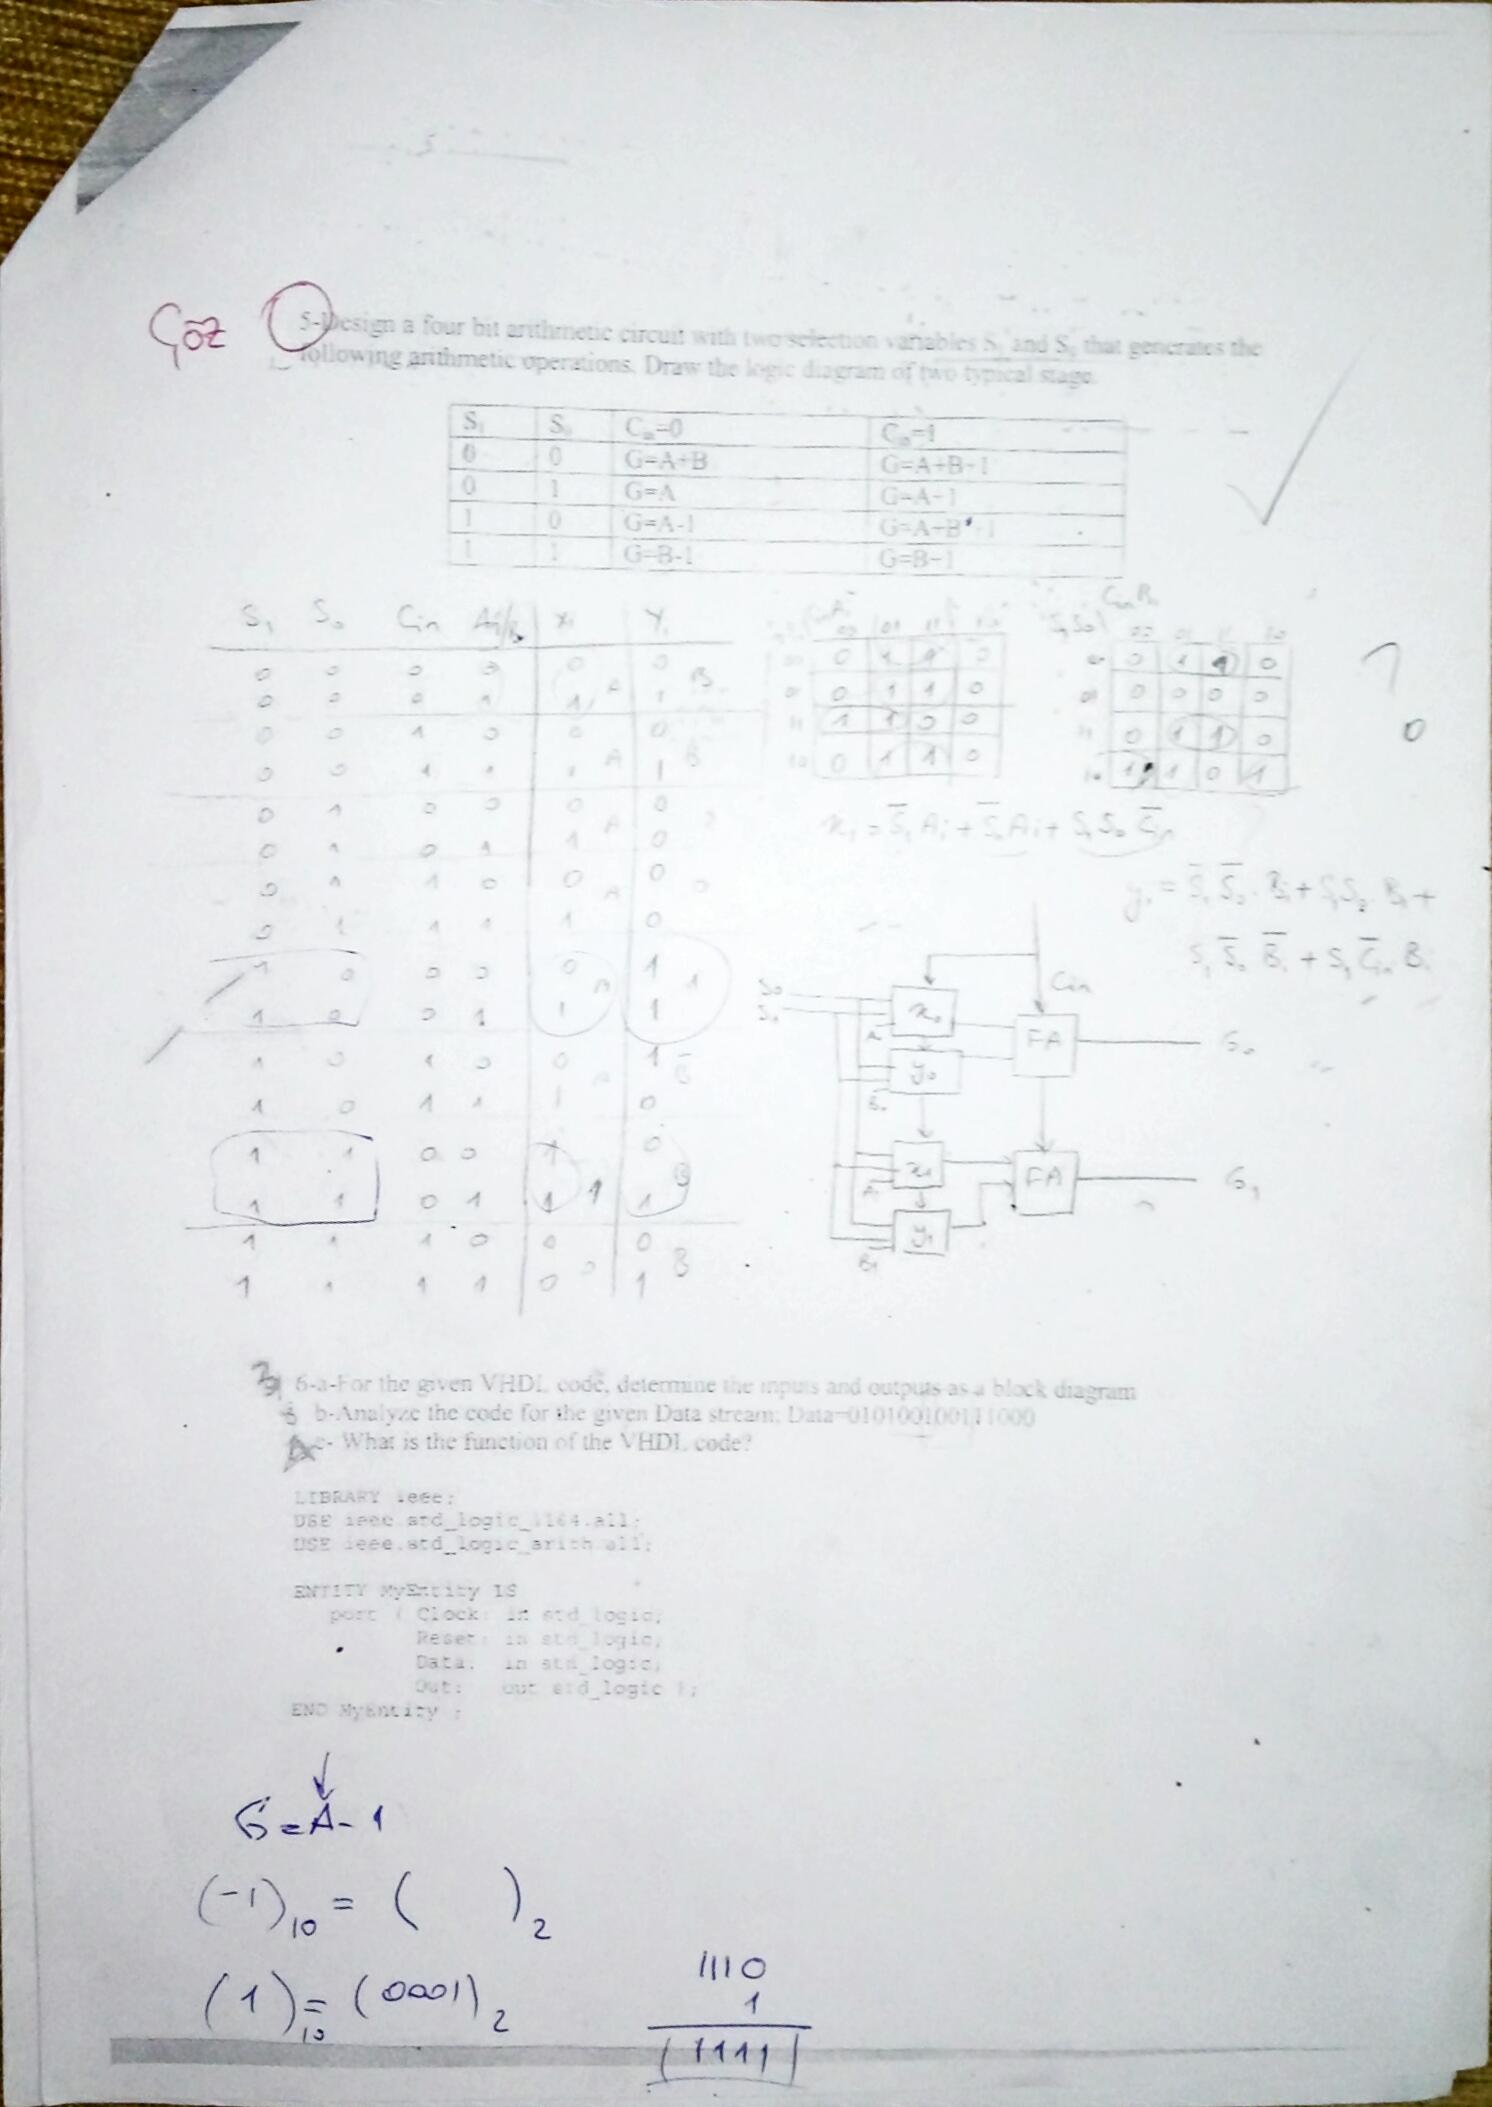 Çöz
5-Design a four bit arithmetic circuit with two selection variables S₁ and S₀ that generates the
following arithmetic operations. Draw the logic diagram of two typical stage.
S₁ S₀ Cin=0 Cin=1
0 0 G=A+B G=A+B+1
0 1 G=A G=A+1
1 0 G=A-1 G=A+B'+1
1 1 G=B-1 G=B+1
S₁ S₀ Cin Ai/Bi Xi Yi
0 0 0 0 0 0
0 0 0 1 1 A 1 B
0 0 1 0 0 0
0 0 1 1 1 A 1 B
0 1 0 0 0 0
0 1 0 1 1 A 0
0 1 1 0 0 0 0
0 1 1 1 1 A 0
1 0 0 0 0 1
1 0 0 1 1 A 1 1
1 0 1 0 0 1
1 0 1 1 1 A 0 B̅
1 1 0 0 1 0
1 1 0 1 1 1 1 B
1 1 1 0 0 0
1 1 1 1 0 0 1 B
00 01 11 10
00 0 1 1 0
01 0 1 1 0
11 1 1 0 0
10 0 1 1 0
S₁S₀ Cin Bi
00 01 11 10
00 0 1 1 0
01 0 0 0 0
11 0 1 1 0
10 1 1 0 1
?
0
xi = S̅₁Ai + S̅₀Ai + S₁S₀C̅in
yi = S̅₁S̅₀.Bi + S₁S₀.Bi +
S₁S̅₀B̅i + S₁C̅inBi
Cin
S₀
S₁
A₀ x₀ FA G₀
B₀ y₀
A₁ x₁ FA G₁
B₁ y₁
6-a-For the given VHDL code, determine the inputs and outputs as a block diagram
b-Analyze the code for the given Data stream: Data=010100100111000
c- What is the function of the VHDL code?
LIBRARY ieee;
USE ieee.std_logic_1164.all;
USE ieee.std_logic_arith.all;
ENTITY MyEntity IS
port ( Clock: in std_logic;
Reset: in std_logic;
Data: in std_logic;
Out: out std_logic );
END MyEntity ;
G=A-1
(-1)₁₀ = ( )₂
(1)₁₀ = (0001)₂
1110
1
1111